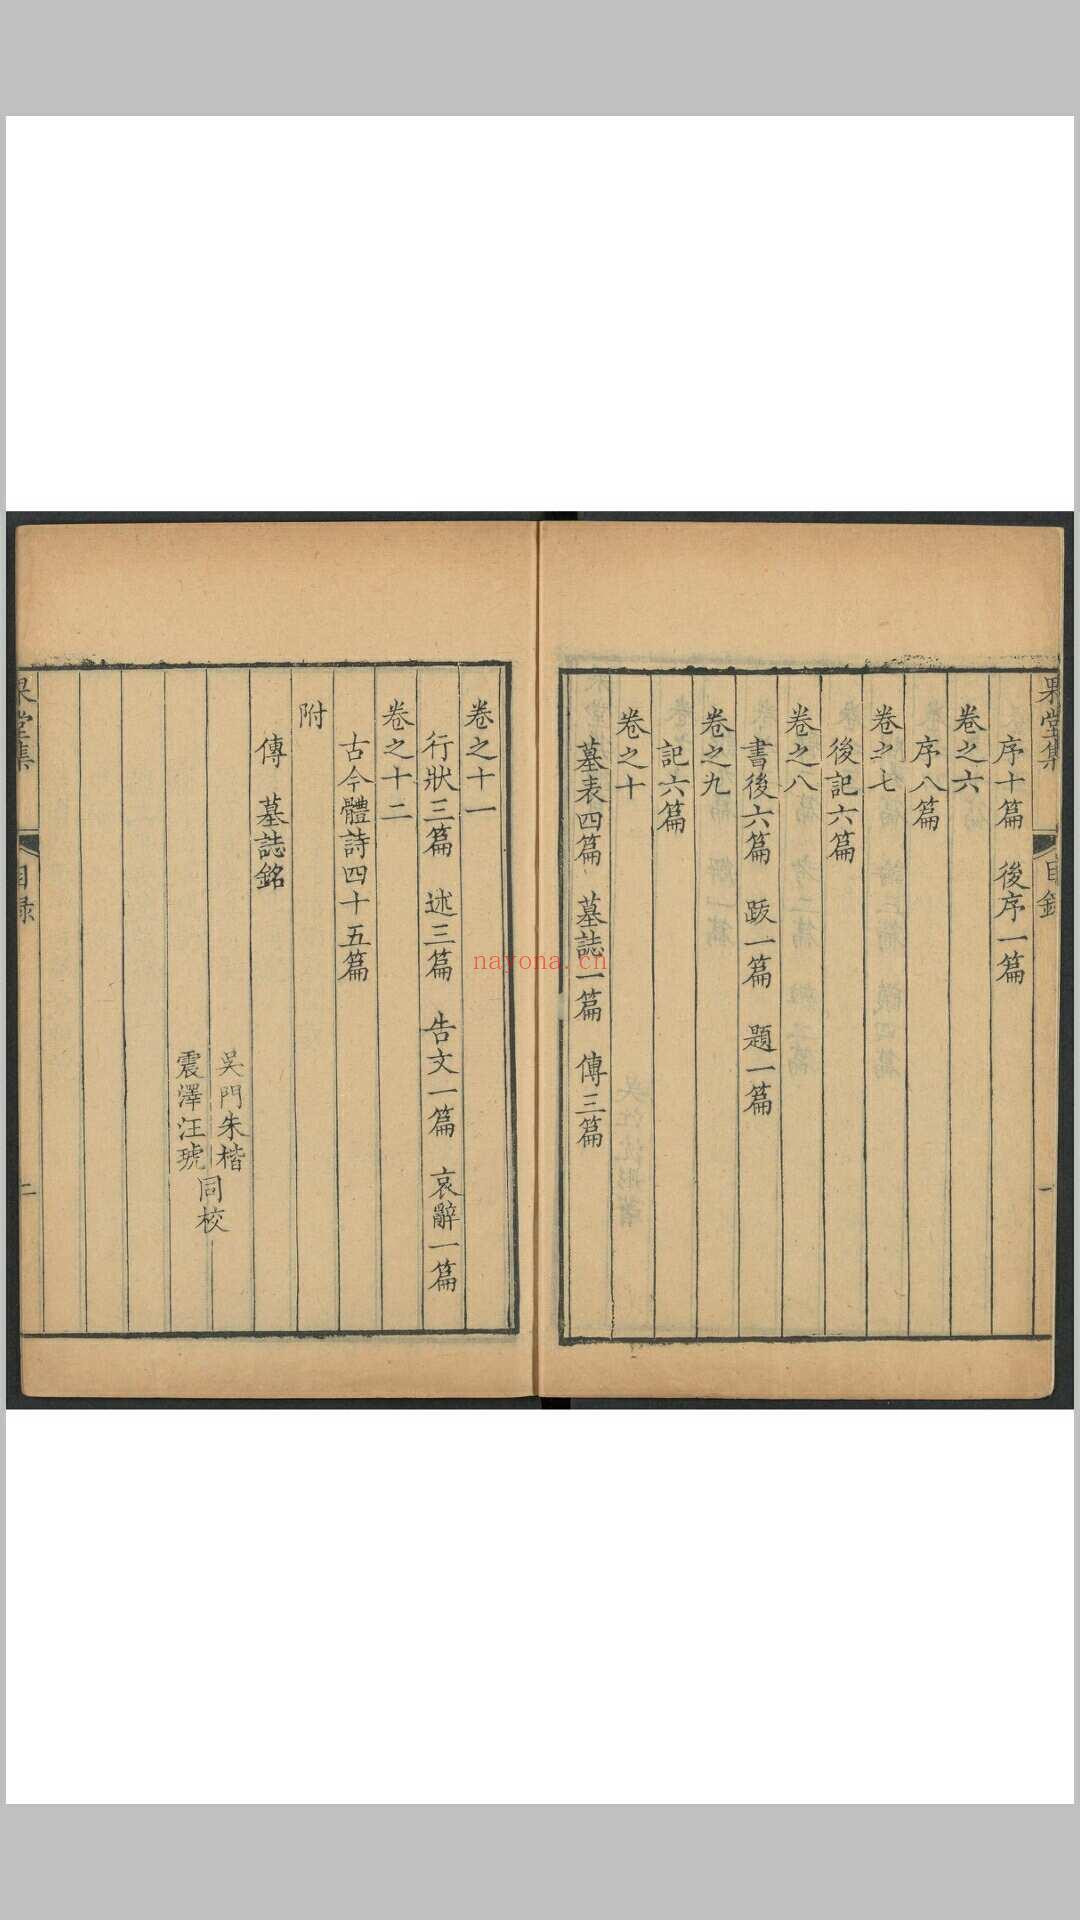 果堂集 目錄 一
序十篇 後序一篇
卷之六
序八篇
卷之七
後記六篇
卷之八
書後六篇 跋一篇 題一篇
卷之九
記六篇
卷之十
墓表四篇 墓誌一篇 傳三篇
卷之十一
行狀三篇 述三篇 告文一篇 哀辭一篇
卷之十二
古今體詩四十五篇
附
傳 墓誌銘
吳門朱楷
震澤汪琥
同校
果堂集 目録 二
nayona.cn